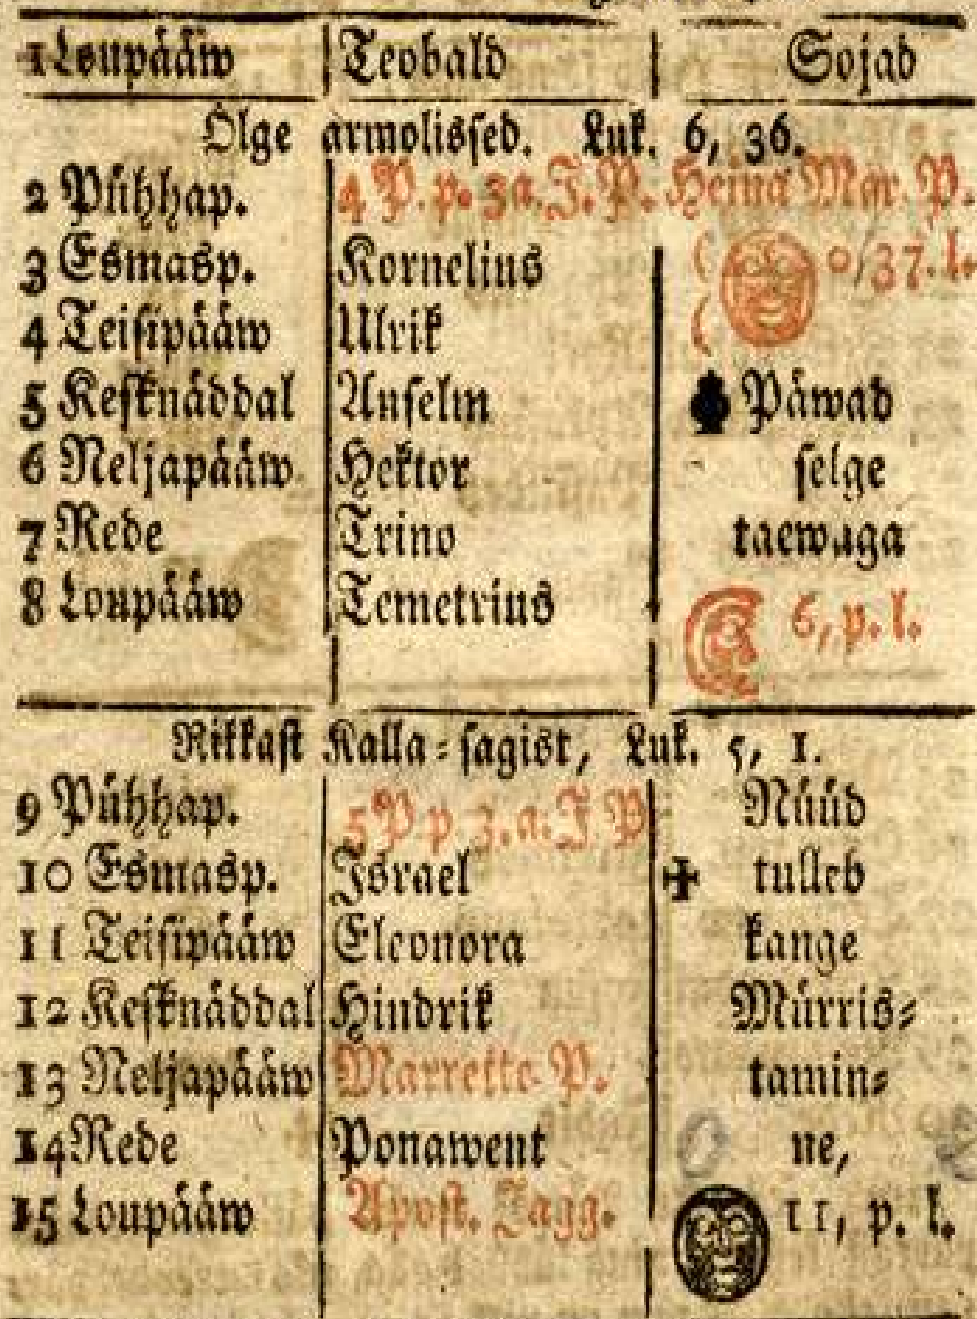 1 Loupääw Teobald Sojad
Olge armolissed. Luk. 6, 36.
2 Pühhap. 4 P. p. 3a. J. P. Heina Mar. P.
3 Esmasp. Kornelius 0/37. l.
4 Teisipääw Ulrik
5 Kesknäddal Anselm Päwad
6 Neljapääw Hektor selge
7 Rede Trino taewaga
8 Loupääw Temetrius 6, p. l.
Rikkast Kalla-sagist, Luk. 5, 1.
9 Pühhap. 5 P p 3. a. J P Nüüd
10 Esmasp. Israel tulleb
11 Teisipääw Eleonora kange
12 Kesknäddal Hindrik Mürris-
13 Neljapääw Marrette P. tamin-
14 Rede Ponawent ne,
15 Loupääw Apost. Jagg. 11, p. l.